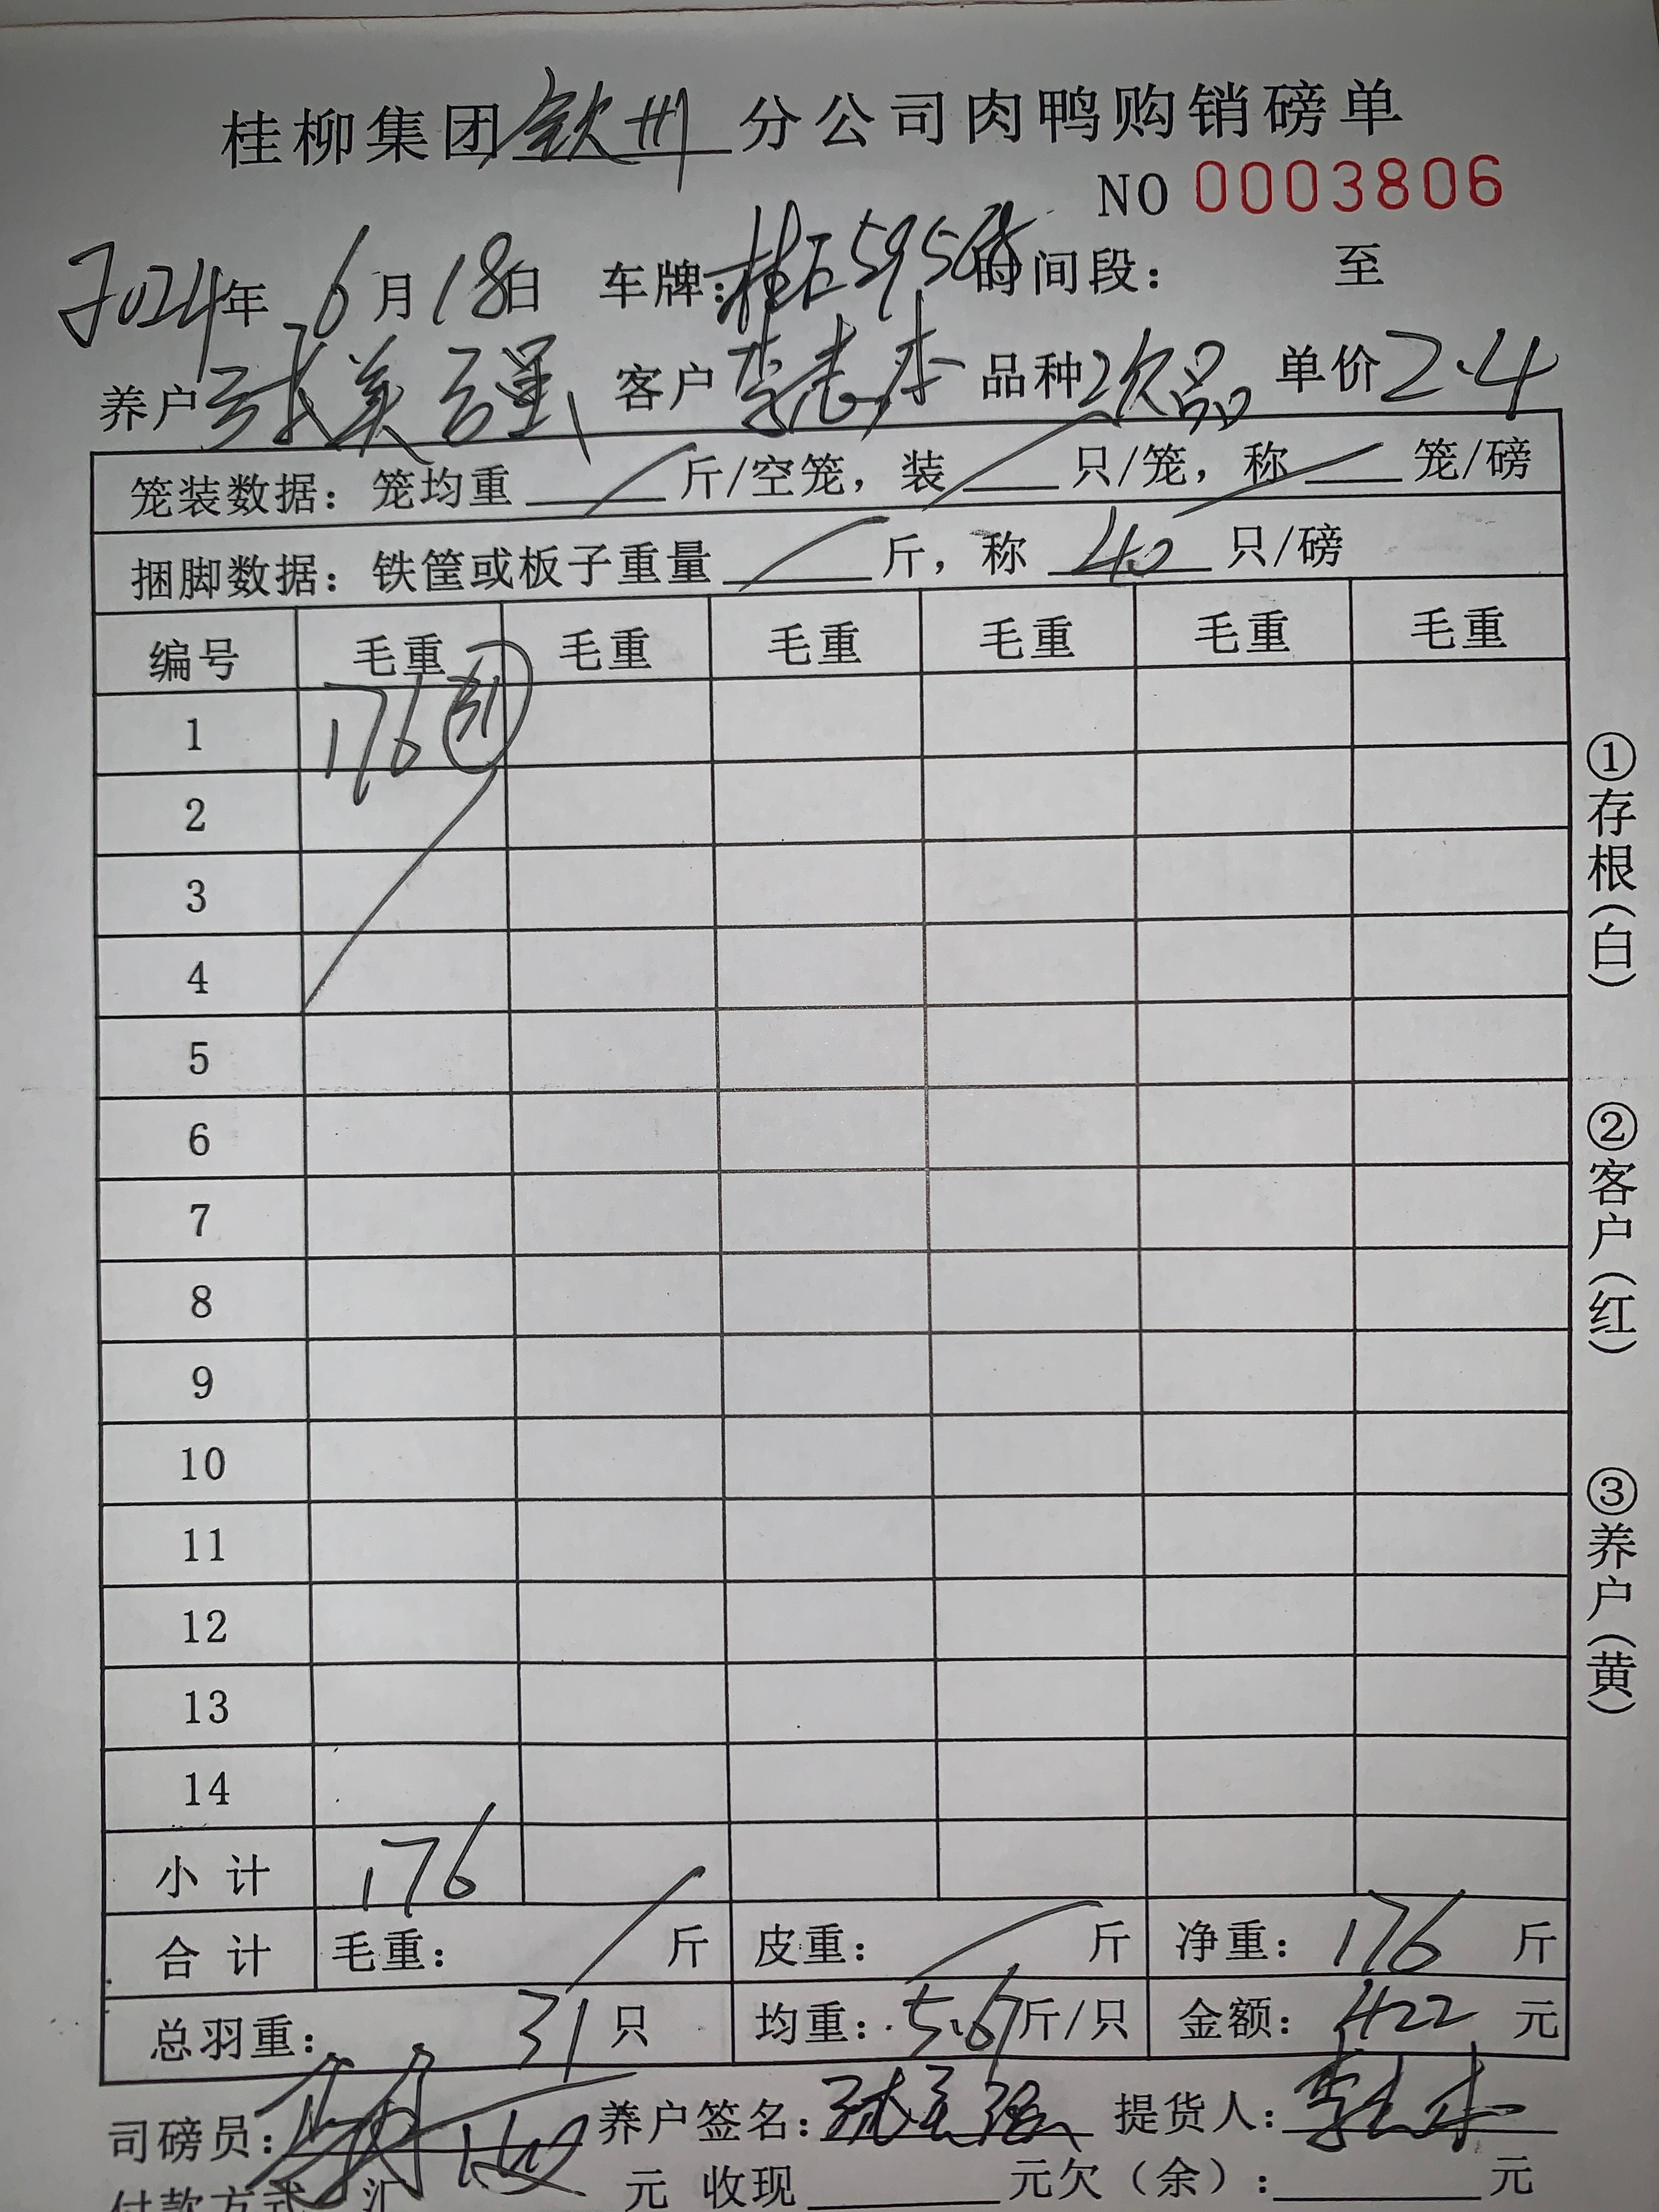 桂柳集团钦州分公司肉鸭购销磅单
NO 0003806
2024年 6月18日 车牌: 时间段: 至
养户 客户 李志 品种次品 单价2.4
笼装数据: 笼均重 斤/空笼, 装 只/笼, 称 笼/磅
捆脚数据: 铁筐或板子重量 斤, 称 40 只/磅
编号 毛重 毛重 毛重 毛重 毛重 毛重
1 176 31
2
3
4
5
6
7
8
9
10
11
12
13
14
小计 176
合计 毛重: 斤 皮重: 斤 净重: 176 斤
总羽重: 31 只 均重: 5.6斤/只 金额: 422 元
司磅员: 养户签名: 提货人:
付款方式 汇 元 收现 元欠(余): 元
①存根(白)
②客户(红)
③养户(黄)